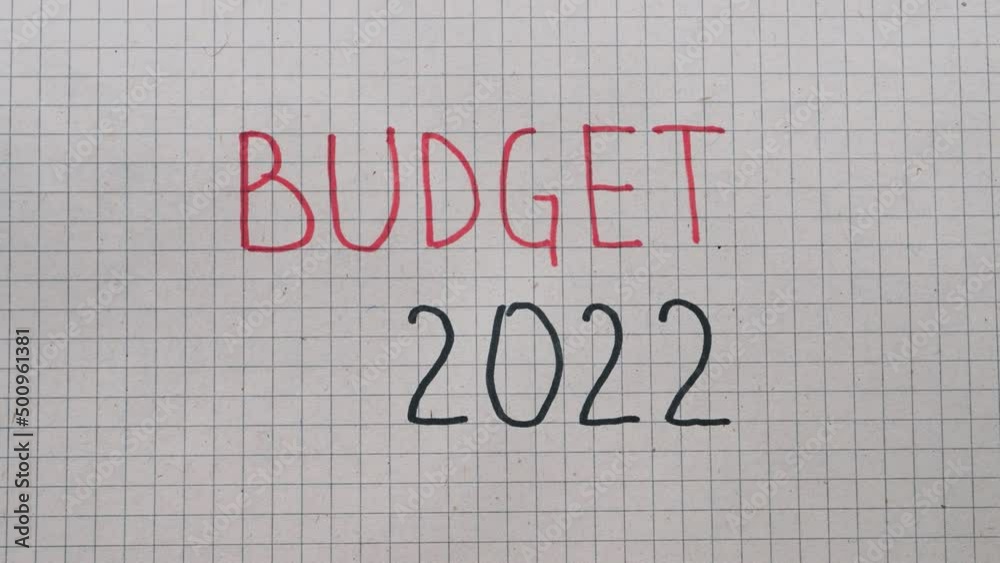 BUDGET
2022
Adobe Stock | #500961381